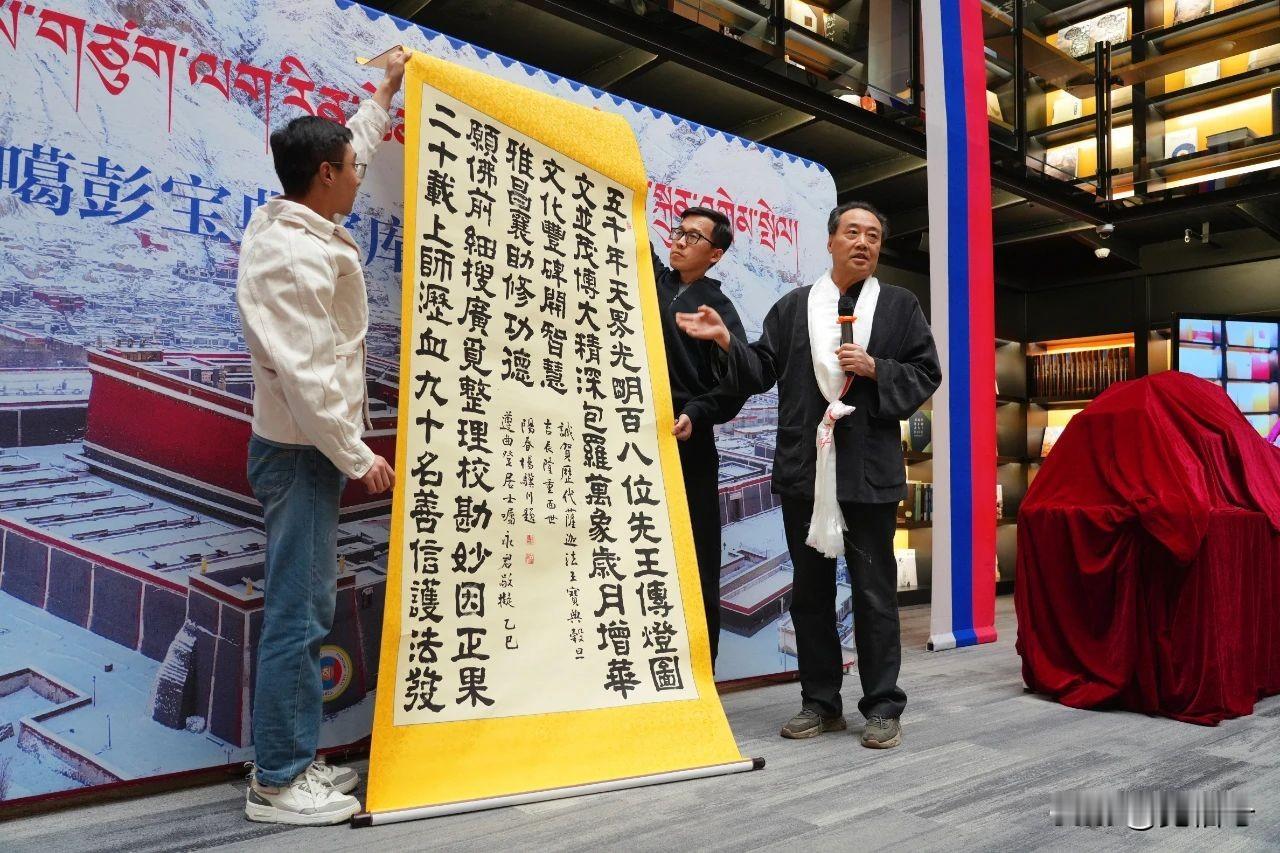 གཙུག་ལག་རིན་
噶彭宝 库
五千年天界光明百八位先王傳燈圖
文並茂博大精深包羅萬象歲月增華
文化豐碑開智慧
誠賀歷代薩迦法王寶典穀旦
吉辰隆重面世
二十載上師瀝血九十名善信護法發
願佛前細搜廣覓整理校勘妙因正果
雅昌襄助修功德
遵曲登居士囑永君敬擬乙巳
陽春楊 川題